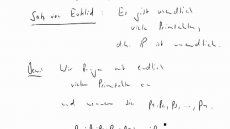 Satz von Euklid : Es gibt unendlich
viele Primzahlen,
d.h. P ist unendlich.
Wir fangen mit endlich
vielen Primzahlen an
und nennen sie p₁, p₂, p₃, ..., pₙ.